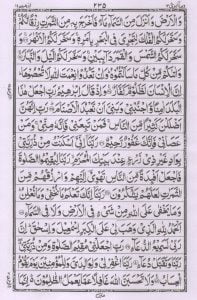 ٢٣٥
وَالْاَرْضَ وَاَنْزَلَ مِنَ السَّمَآءِ مَآءً فَاَخْرَجَ بِهٖ مِنَ الثَّمَرٰتِ رِزْقًا لَّكُمْ
وَسَخَّرَ لَكُمُ الْفُلْكَ لِتَجْرِيَ فِي الْبَحْرِ بِاَمْرِهٖ وَسَخَّرَ لَكُمُ الْاَنْهٰرَ
وَسَخَّرَ لَكُمُ الشَّمْسَ وَالْقَمَرَ دَآئِبَيْنِ وَسَخَّرَ لَكُمُ الَّيْلَ وَالنَّهَارَ
وَاٰتٰىكُمْ مِّنْ كُلِّ مَا سَاَلْتُمُوْهُ وَاِنْ تَعُدُّوْا نِعْمَتَ اللّٰهِ لَا تُحْصُوْهَا
اِنَّ الْاِنْسَانَ لَظَلُوْمٌ كَفَّارٌ وَاِذْ قَالَ اِبْرٰهِيْمُ رَبِّ اجْعَلْ هٰذَا
الْبَلَدَ اٰمِنًا وَّاجْنُبْنِيْ وَبَنِيَّ اَنْ نَّعْبُدَ الْاَصْنَامَ رَبِّ اِنَّهُنَّ
اَضْلَلْنَ كَثِيْرًا مِّنَ النَّاسِ فَمَنْ تَبِعَنِيْ فَاِنَّهٗ مِنِّيْ وَمَنْ
عَصَانِيْ فَاِنَّكَ غَفُوْرٌ رَّحِيْمٌ رَبَّنَا اِنِّيْ اَسْكَنْتُ مِنْ ذُرِّيَّتِيْ
بِوَادٍ غَيْرِ ذِيْ زَرْعٍ عِنْدَ بَيْتِكَ الْمُحَرَّمِ رَبَّنَا لِيُقِيْمُوا الصَّلٰوةَ
فَاجْعَلْ اَفْئِدَةً مِّنَ النَّاسِ تَهْوِيْ اِلَيْهِمْ وَارْزُقْهُمْ مِّنَ
الثَّمَرٰتِ لَعَلَّهُمْ يَشْكُرُوْنَ رَبَّنَا اِنَّكَ تَعْلَمُ مَا نُخْفِيْ وَمَا نُعْلِنُ
وَمَا يَخْفٰى عَلَى اللّٰهِ مِنْ شَيْءٍ فِي الْاَرْضِ وَلَا فِي السَّمَآءِ
اَلْحَمْدُ لِلّٰهِ الَّذِيْ وَهَبَ لِيْ عَلَى الْكِبَرِ اِسْمٰعِيْلَ وَاِسْحٰقَ اِنَّ
رَبِّيْ لَسَمِيْعُ الدُّعَآءِ رَبِّ اجْعَلْنِيْ مُقِيْمَ الصَّلٰوةِ وَمِنْ ذُرِّيَّتِيْ
رَبَّنَا وَتَقَبَّلْ دُعَآءِ رَبَّنَا اغْفِرْ لِيْ وَلِوَالِدَيَّ وَلِلْمُؤْمِنِيْنَ يَوْمَ يَقُوْمُ
الْحِسَابُ وَلَا تَحْسَبَنَّ اللّٰهَ غَافِلًا عَمَّا يَعْمَلُ الظّٰلِمُوْنَ اِنَّمَا